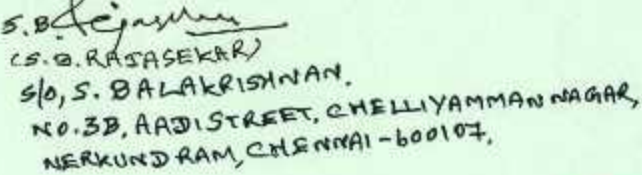 S.B. Rajasekar
(S.B. RAJASEKAR)
S/O, S. BALAKRISHNAN.
NO.3B, AADI STREET, CHELLIYAMMAN NAGAR,
NERKUNDRAM, CHENNAI-600107.